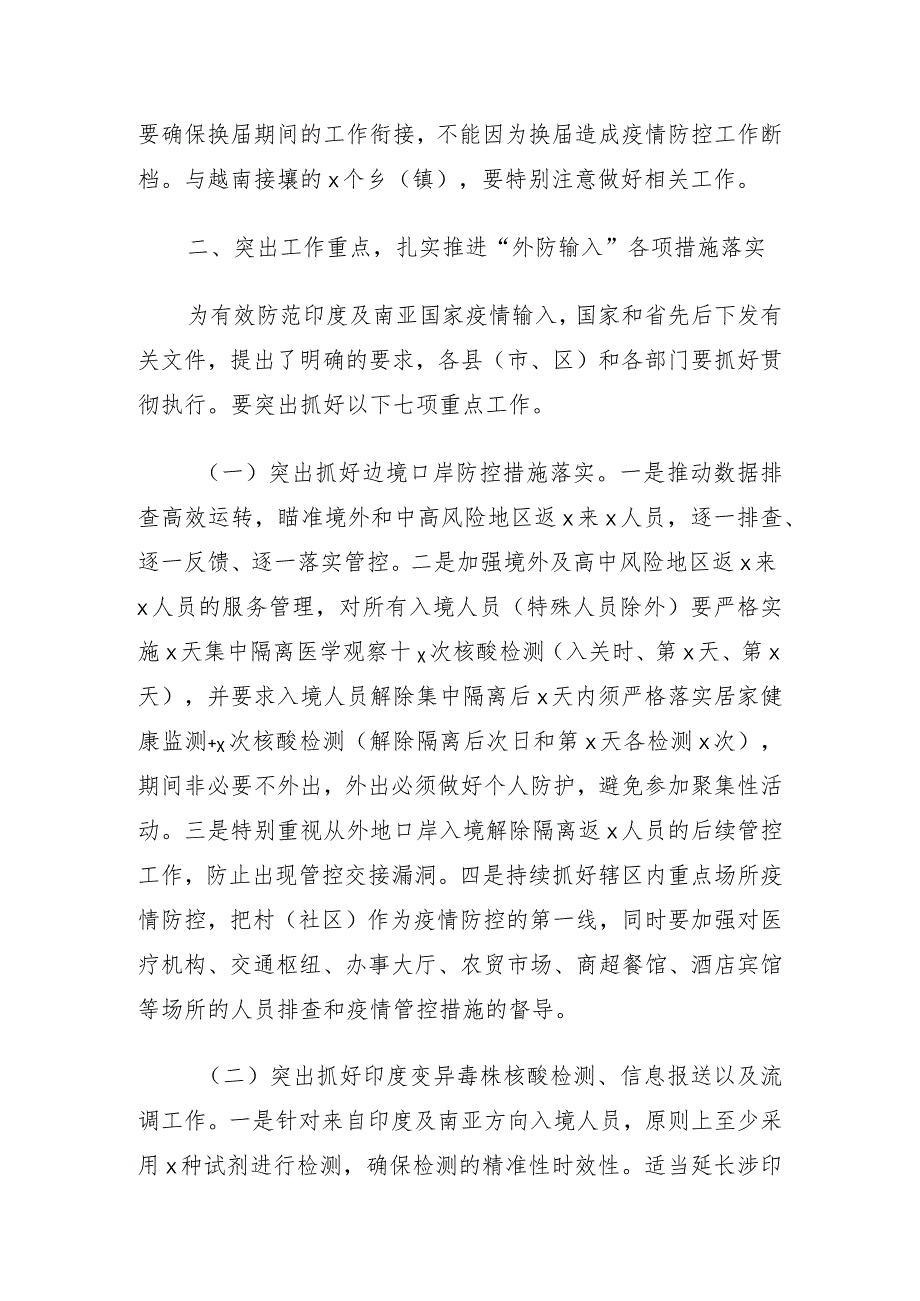 要确保换届期间的工作衔接，不能因为换届造成疫情防控工作断
档。与越南接壤的x个乡（镇），要特别注意做好相关工作。
二、突出工作重点，扎实推进“外防输入”各项措施落实
为有效防范印度及南亚国家疫情输入，国家和省先后下发有
关文件，提出了明确的要求，各县（市、区）和各部门要抓好贯
彻执行。要突出抓好以下七项重点工作。
（一）突出抓好边境口岸防控措施落实。一是推动数据排
查高效运转，瞄准境外和中高风险地区返x来x人员，逐一排查、
逐一反馈、逐一落实管控。二是加强境外及高中风险地区返x来
x人员的服务管理，对所有入境人员（特殊人员除外）要严格实
施x天集中隔离医学观察十χ次核酸检测（入关时、第x天、第x
天），并要求入境人员解除集中隔离后x天内须严格落实居家健
康监测+χ次核酸检测（解除隔离后次日和第x天各检测x次），
期间非必要不外出，外出必须做好个人防护，避免参加聚集性活
动。三是特别重视从外地口岸入境解除隔离返x人员的后续管控
工作，防止出现管控交接漏洞。四是持续抓好辖区内重点场所疫
情防控，把村（社区）作为疫情防控的第一线，同时要加强对医
疗机构、交通枢纽、办事大厅、农贸市场、商超餐馆、酒店宾馆
等场所的人员排查和疫情管控措施的督导。
（二）突出抓好印度变异毒株核酸检测、信息报送以及流
调工作。一是针对来自印度及南亚方向入境人员，原则上至少采
用x种试剂进行检测，确保检测的精准性时效性。适当延长涉印